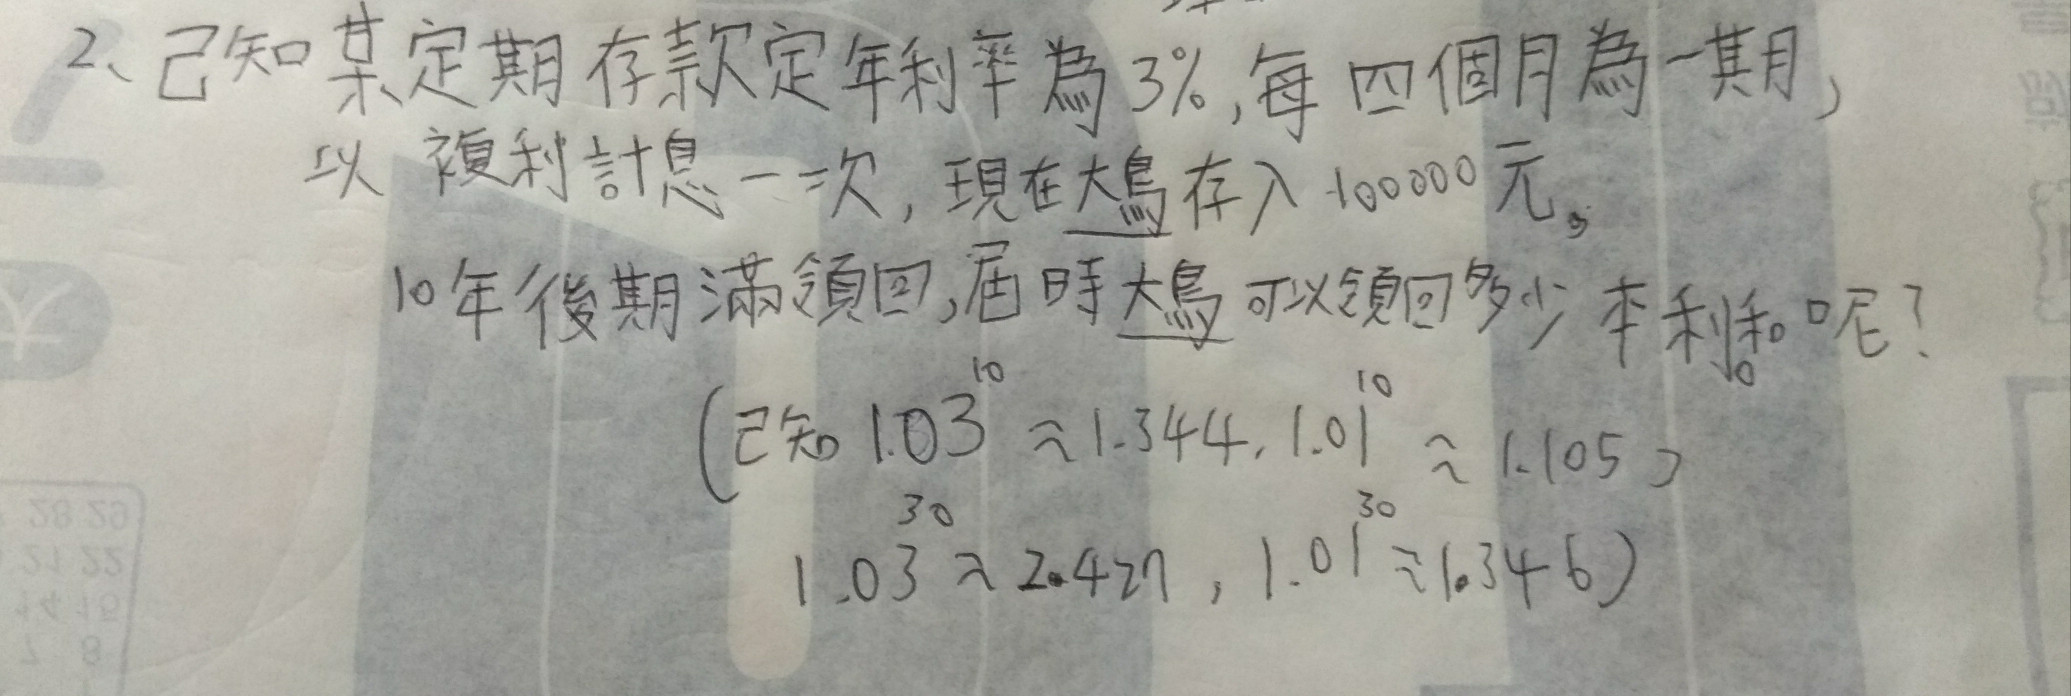 2、已知某定期存款定年利率為3%,每四個月為一期,
以複利計息一次,現在大鳥存入100000元。
10年後期滿領回,屆時大鳥可以領回多少本利和呢?
(已知 1.03^10 ≈ 1.344, 1.01^10 ≈ 1.105,
1.03^30 ≈ 2.427, 1.01^30 ≈ 1.346)